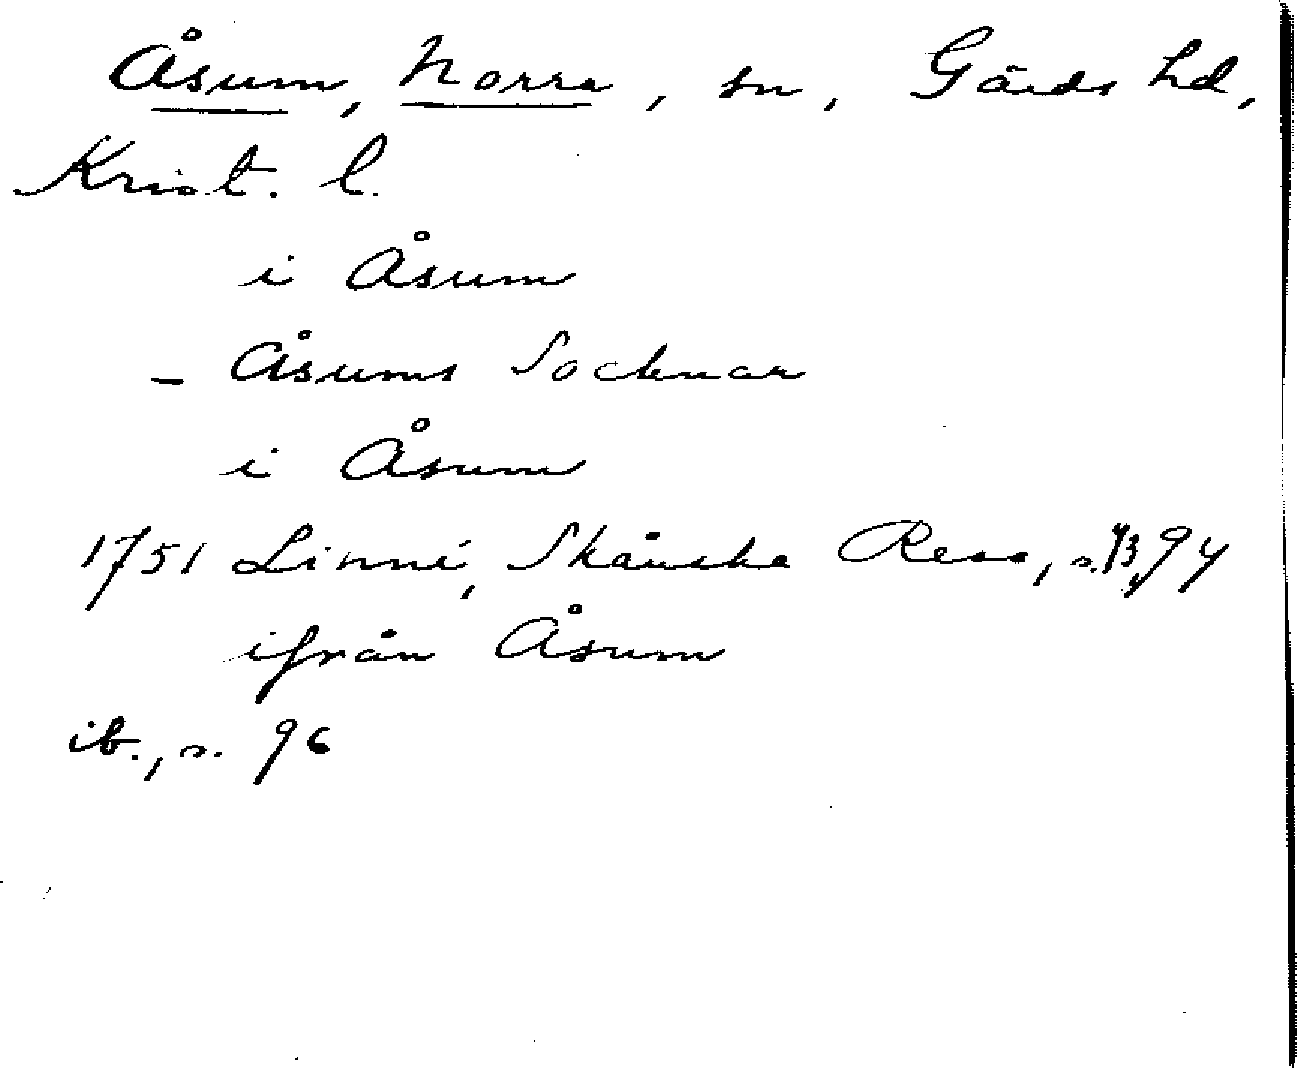 Åsum, Norra, sn, Gärds hd,
Krist. l.
i Åsum
- Åsums Socknar
i Åsum
1751 Linné, Skånska Resa, s. 94
ifrån Åsum
ib., s. 96